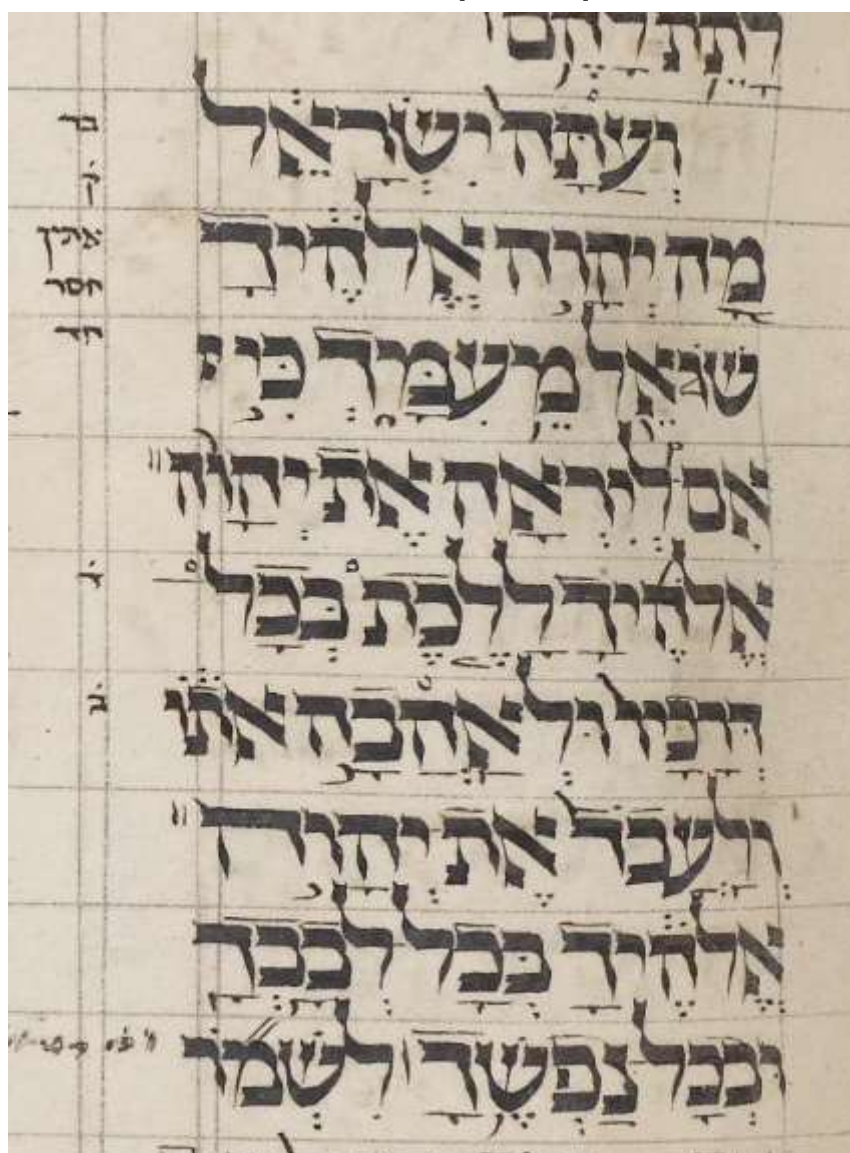 לָתֵת לָהֶם
וְעַתָּה יִשְׂרָאֵל
מָה יְהוָה אֱלֹהֶיךָ
שֹׁאֵל מֵעִמָּךְ כִּי
אִם לְיִרְאָה אֶת יְהוָה
אֱלֹהֶיךָ לָלֶכֶת בְּכָל
דְּרָכָיו וּלְאַהֲבָה אֹתוֹ
וְלַעֲבֹד אֶת יְהוָה
אֱלֹהֶיךָ בְּכָל לְבָבְךָ
וּבְכָל נַפְשֶׁךָ לִשְׁמֹר